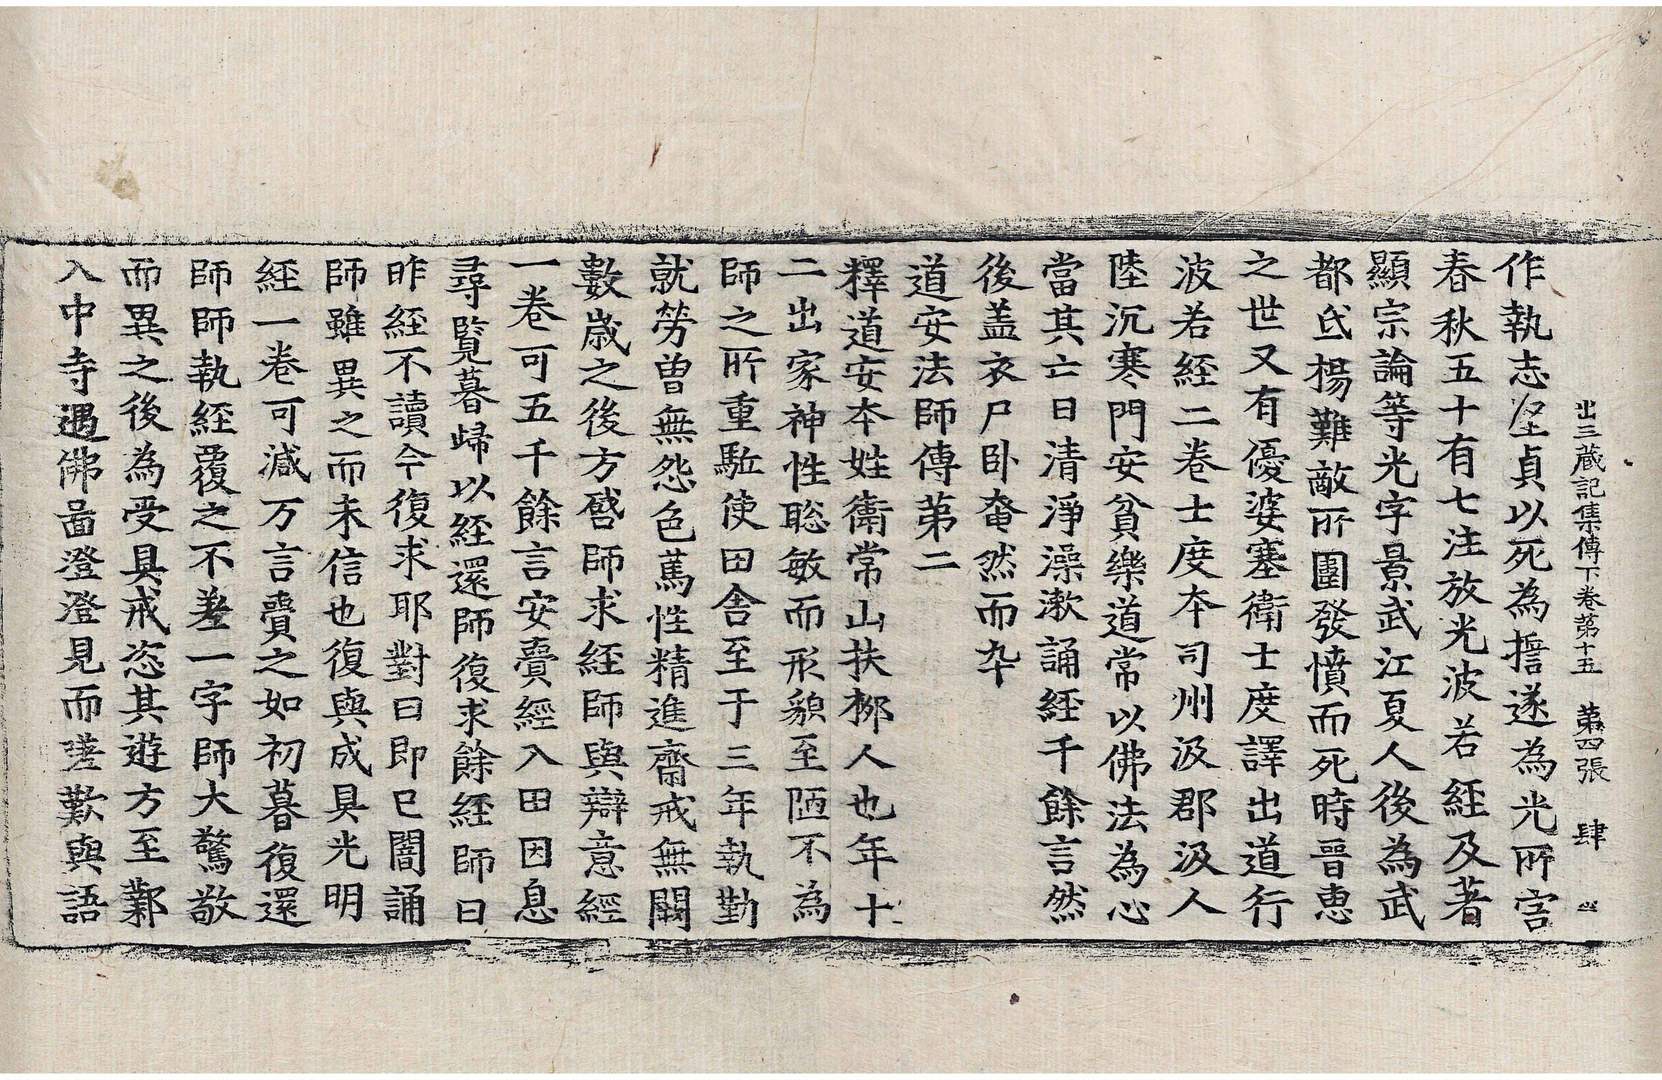 出三藏記集傳下卷第十五 第四張 肆
作執志堅貞以死為擔遂為光所害
春秋五十有七注放光波若經及著
顯宗論等光字景武江夏人後為武
都氐楊難敵所圍發憤而死時晉惠
之世又有優婆塞衛士度譯出道行
波若經二卷士度本司州汲郡汲人
陸沉寒門安貧樂道常以佛法為心
當其亡日清淨澡漱誦經千餘言然
後盖衣尸卧奄然而卒
道安法師傳第二
釋道安本姓衛常山扶柳人也年十
二出家神性聡敏而形貌至陋不為
師之所重駈使田舎至于三年執勤
就勞曽無怨色篤性精進齋戒無闕
數歲之後方啓師求經師與辯意經
一卷可五千餘言安賷經入田因息
尋覽暮歸以經還師復求餘經師曰
昨經不讀今復求耶對曰即已闇誦
師雖異之而未信也復與成具光明
經一卷可減万言賷之如初暮復還
師師執經覆之不差一字師大驚敬
而異之後為受具戒恣其遊方至鄴
入中寺遇佛啚澄澄見而嗟歎與語